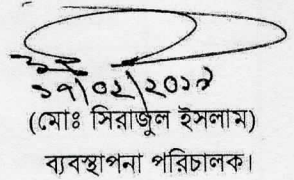 ১৭/০২/২০১৭
(মোঃ সিরাজুল ইসলাম)
ব্যবস্থাপনা পরিচালক।